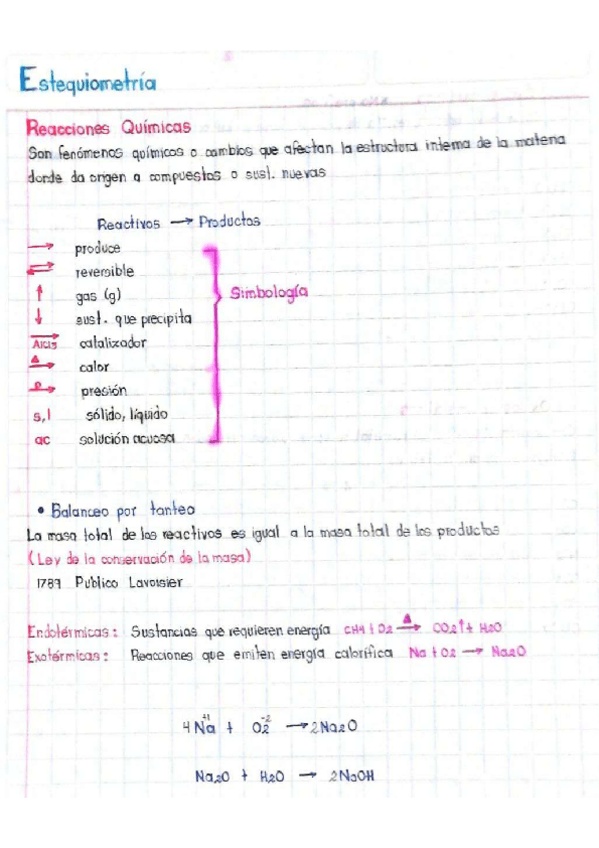 Estequiometría
Reacciones Químicas
Son fenómenos químicos o cambios que afectan la estructura interna de la materia
donde da origen a compuestos o sust. nuevas
Reactivos → Productos
→ produce
⇌ reversible
↑ gas (g)
↓ sust. que precipita
AlCl3 → catalizador
Δ → calor
P → presión
s, l sólido, líquido
ac solución acuosa
Simbología
• Balanceo por tanteo
La masa total de los reactivos es igual a la masa total de los productos
(Ley de la conservación de la masa)
1789 Publico Lavoisier
Endotérmicas: Sustancias que requieren energía CH4 + O2 Δ→ CO2↑ + H2O
Exotérmicas: Reacciones que emiten energía calorífica Na + O2 → Na2O
4Na⁺¹ + O2⁻² → 2Na2O
Na2O + H2O → 2NaOH